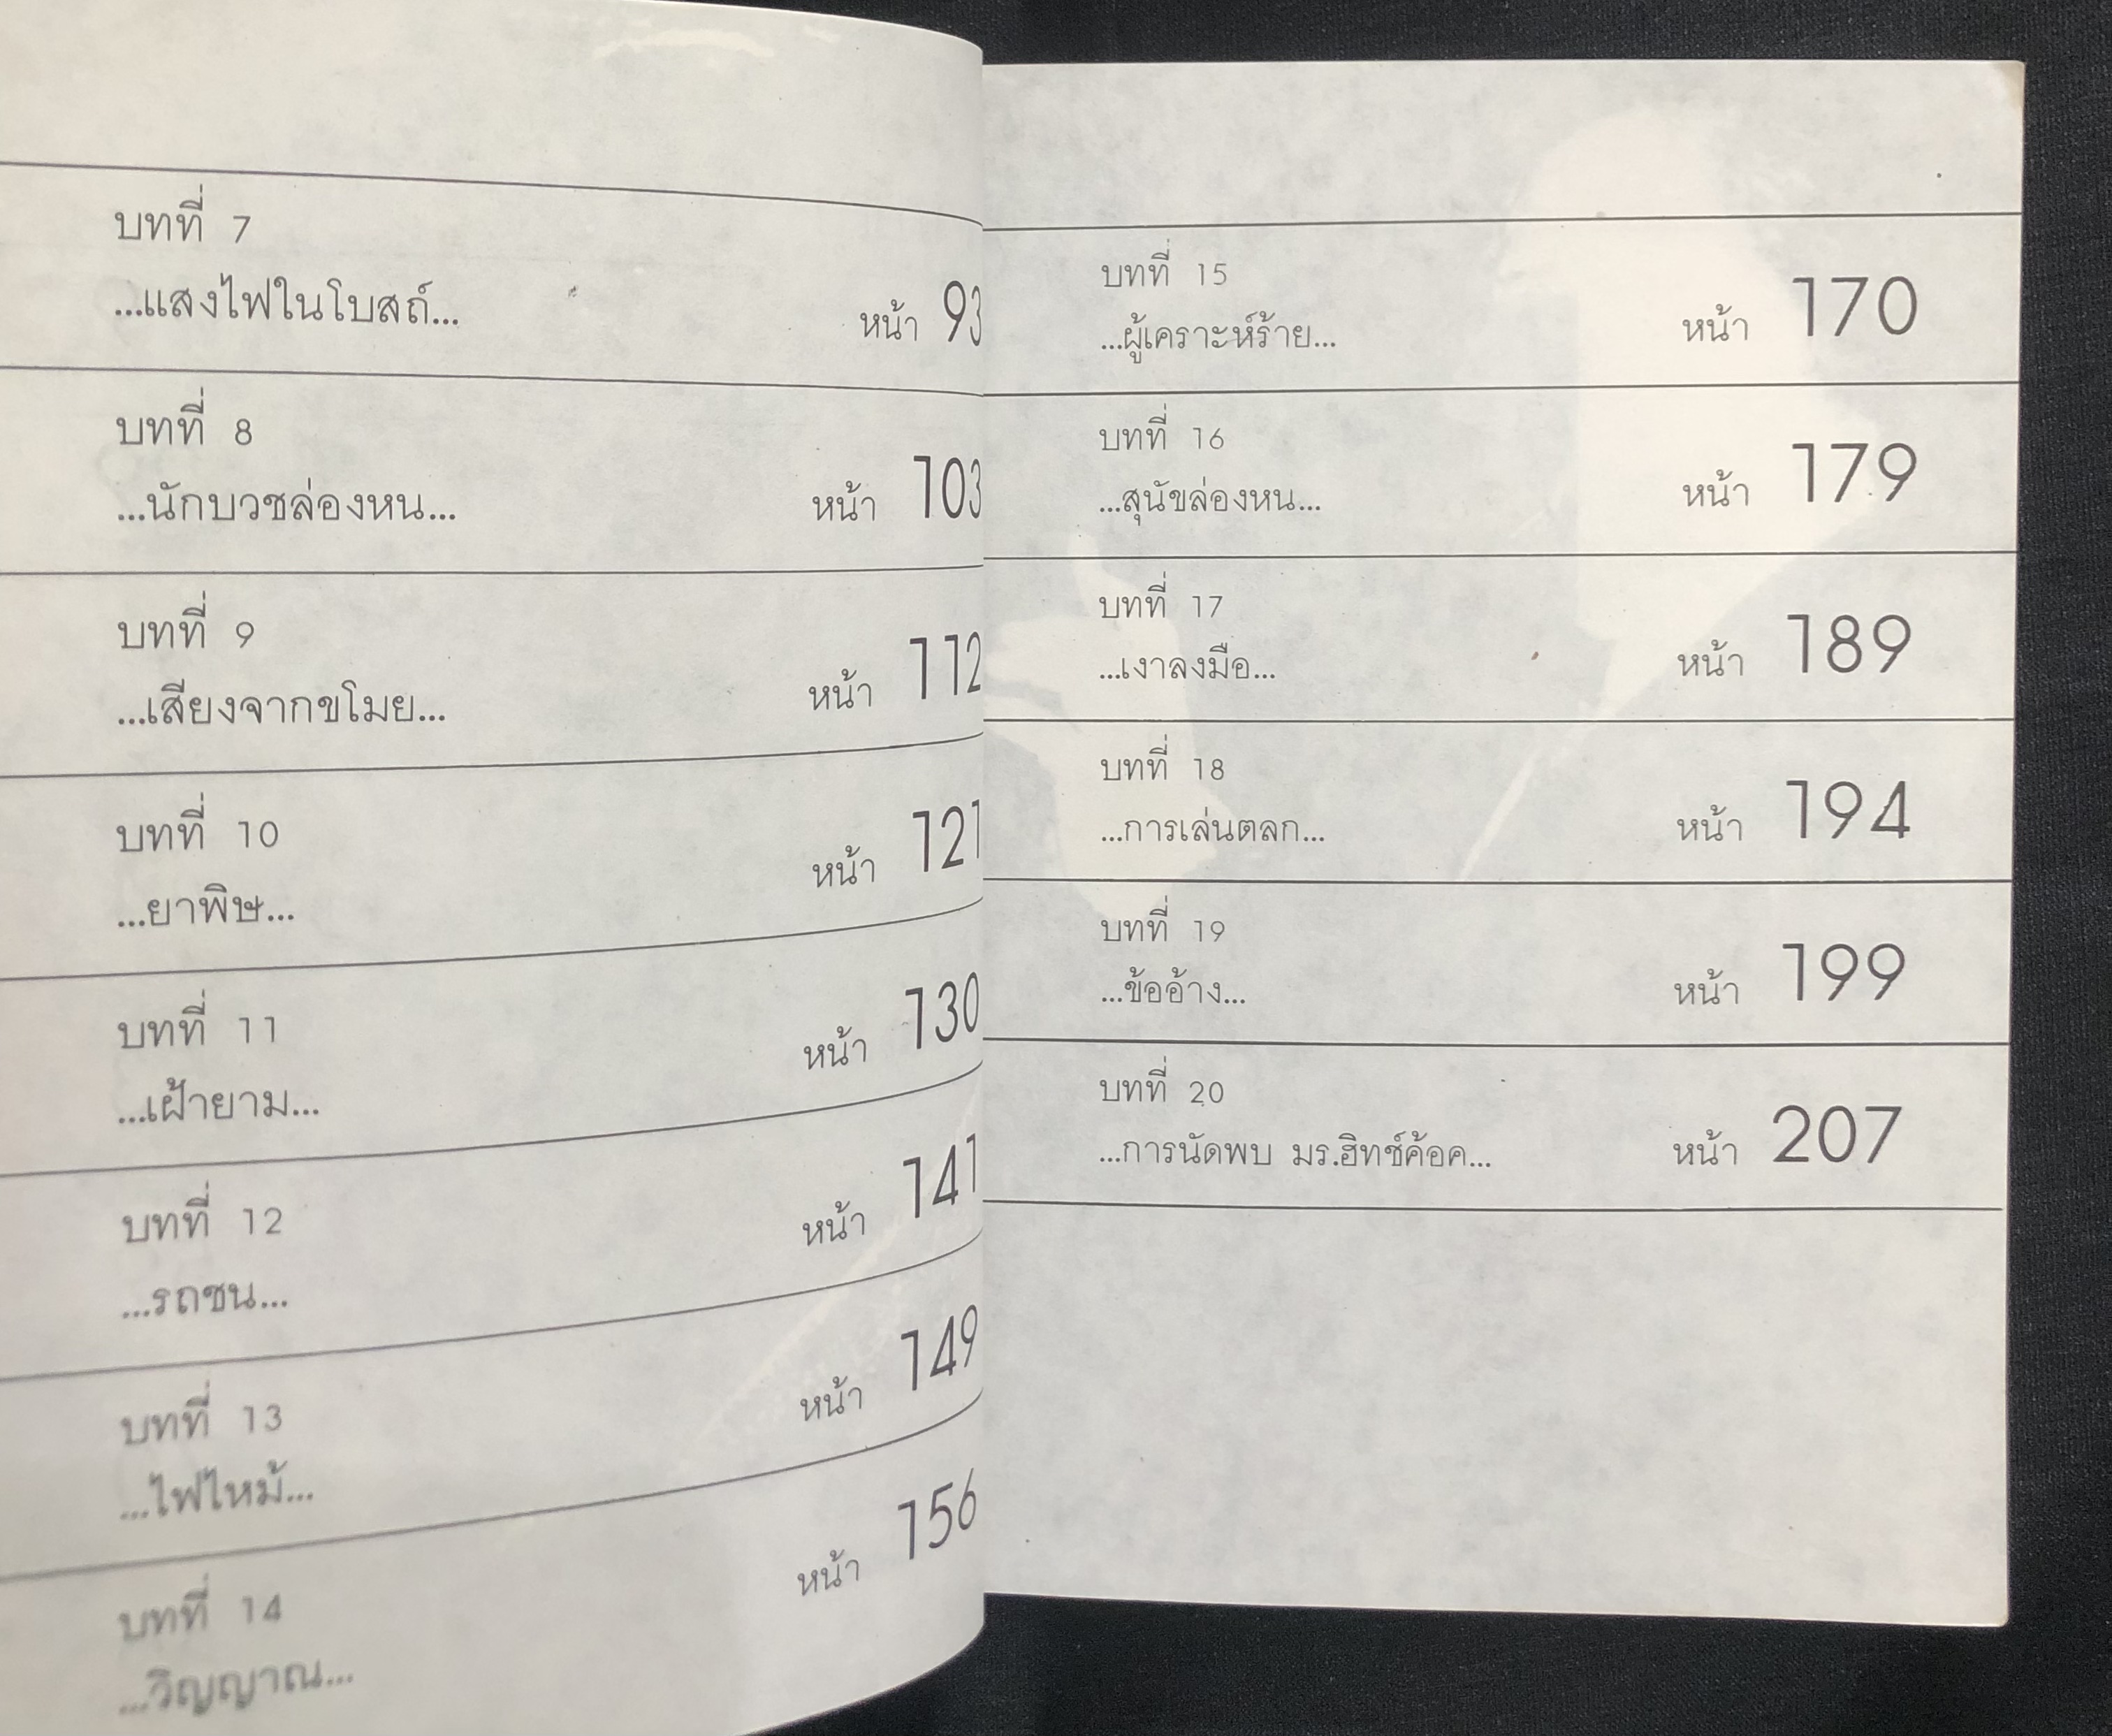 บทที่ 7
...แสงไฟในโบสถ์...
หน้า 93
บทที่ 8
...นักบวชล่องหน...
หน้า 103
บทที่ 9
...เสียงจากขโมย...
หน้า 112
บทที่ 10
...ยาพิษ...
หน้า 121
บทที่ 11
...เฝ้ายาม...
หน้า 130
บทที่ 12
...รถชน...
หน้า 141
บทที่ 13
...ไฟไหม้...
หน้า 149
บทที่ 14
...วิญญาณ...
หน้า 156
บทที่ 15
...ผู้เคราะห์ร้าย...
หน้า 170
บทที่ 16
...สุนัขล่องหน...
หน้า 179
บทที่ 17
...เงาลงมือ...
หน้า 189
บทที่ 18
...การเล่นตลก...
หน้า 194
บทที่ 19
...ข้ออ้าง...
หน้า 199
บทที่ 20
...การนัดพบ มร.ฮิทช์ค้อค...
หน้า 207